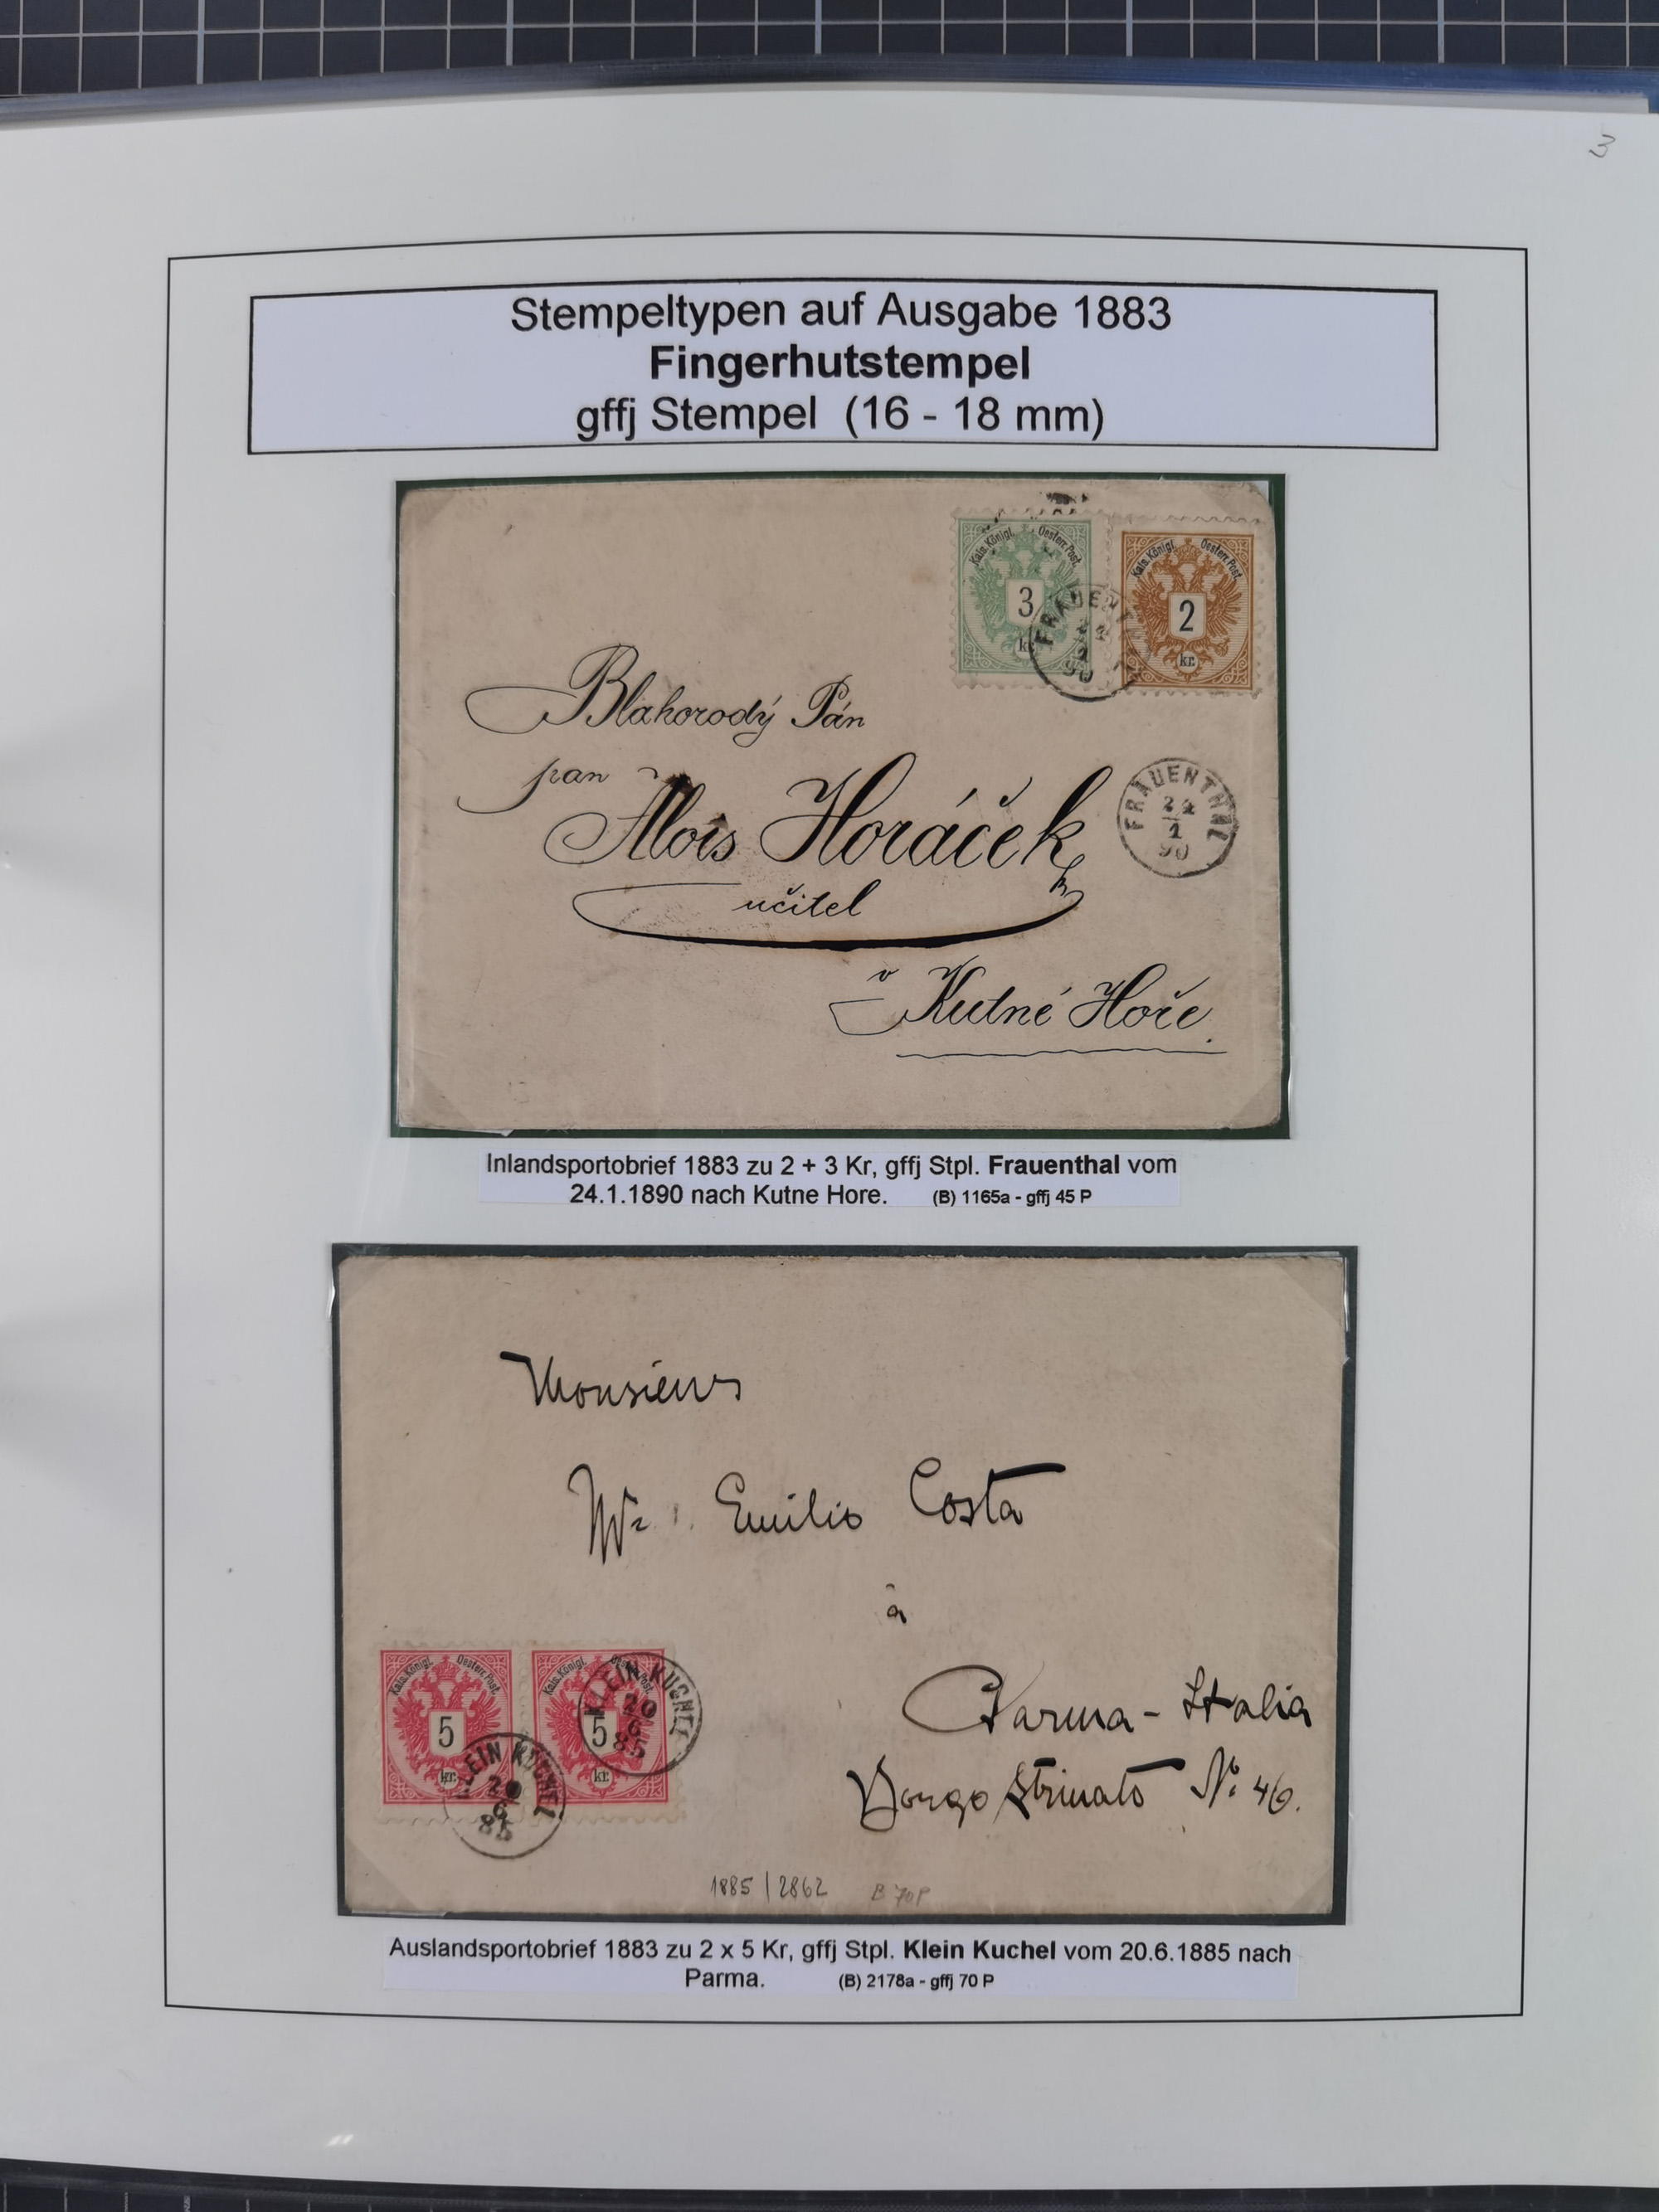 3
Stempeltypen auf Ausgabe 1883
Fingerhutstempel
gffj Stempel (16 - 18 mm)
Kais. Königl. Oesterr. Post.
3
kr.
Kais. Königl. Oesterr. Post.
2
kr.
FRAUENTHAL
24
1
90
Blahorodý Pán
pan
Alois Horáček
učitel
FRAUENTHAL
24
1
90
v Kutné Hoře.
Inlandsportobrief 1883 zu 2 + 3 Kr, gffj Stpl. Frauenthal vom
24.1.1890 nach Kutne Hore. (B) 1165a - gffj 45 P
Monsieur
Mr. Emilio Costa
à
Parma - Italia
Borgo Strinato No. 46.
Kais. Königl. Oesterr. Post.
5
kr.
Kais. Königl. Oesterr. Post.
5
kr.
KLEIN KUCHEL
20
6
85
KLEIN KUCHEL
20
6
85
1885 | 2862 B 70P
Auslandsportobrief 1883 zu 2 x 5 Kr, gffj Stpl. Klein Kuchel vom 20.6.1885 nach
Parma. (B) 2178a - gffj 70 P